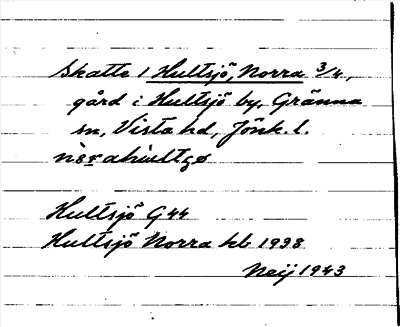 Skatte 1 Hultsjö, Norra 3/4,
gård i Hultsjö by, Gränna
sn, Vista hd, Jönk. l.
Hultsjö G44
Hultsjö Norra kb 1938
Neij 1943